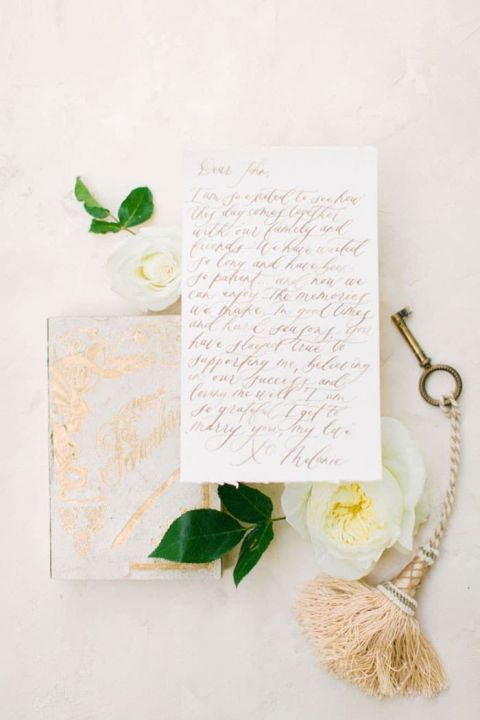 Dear John,
I am so excited to see how
this day comes together
with our family and
friends. We have waited
so long and have been
so patient.. and now we
can enjoy the memories
we make. In good times
and hard seasons, you
have stayed true to
supporting me, believing
in our success and
loving me well. I am
so grateful I get to
marry you, my love
XO Melanie